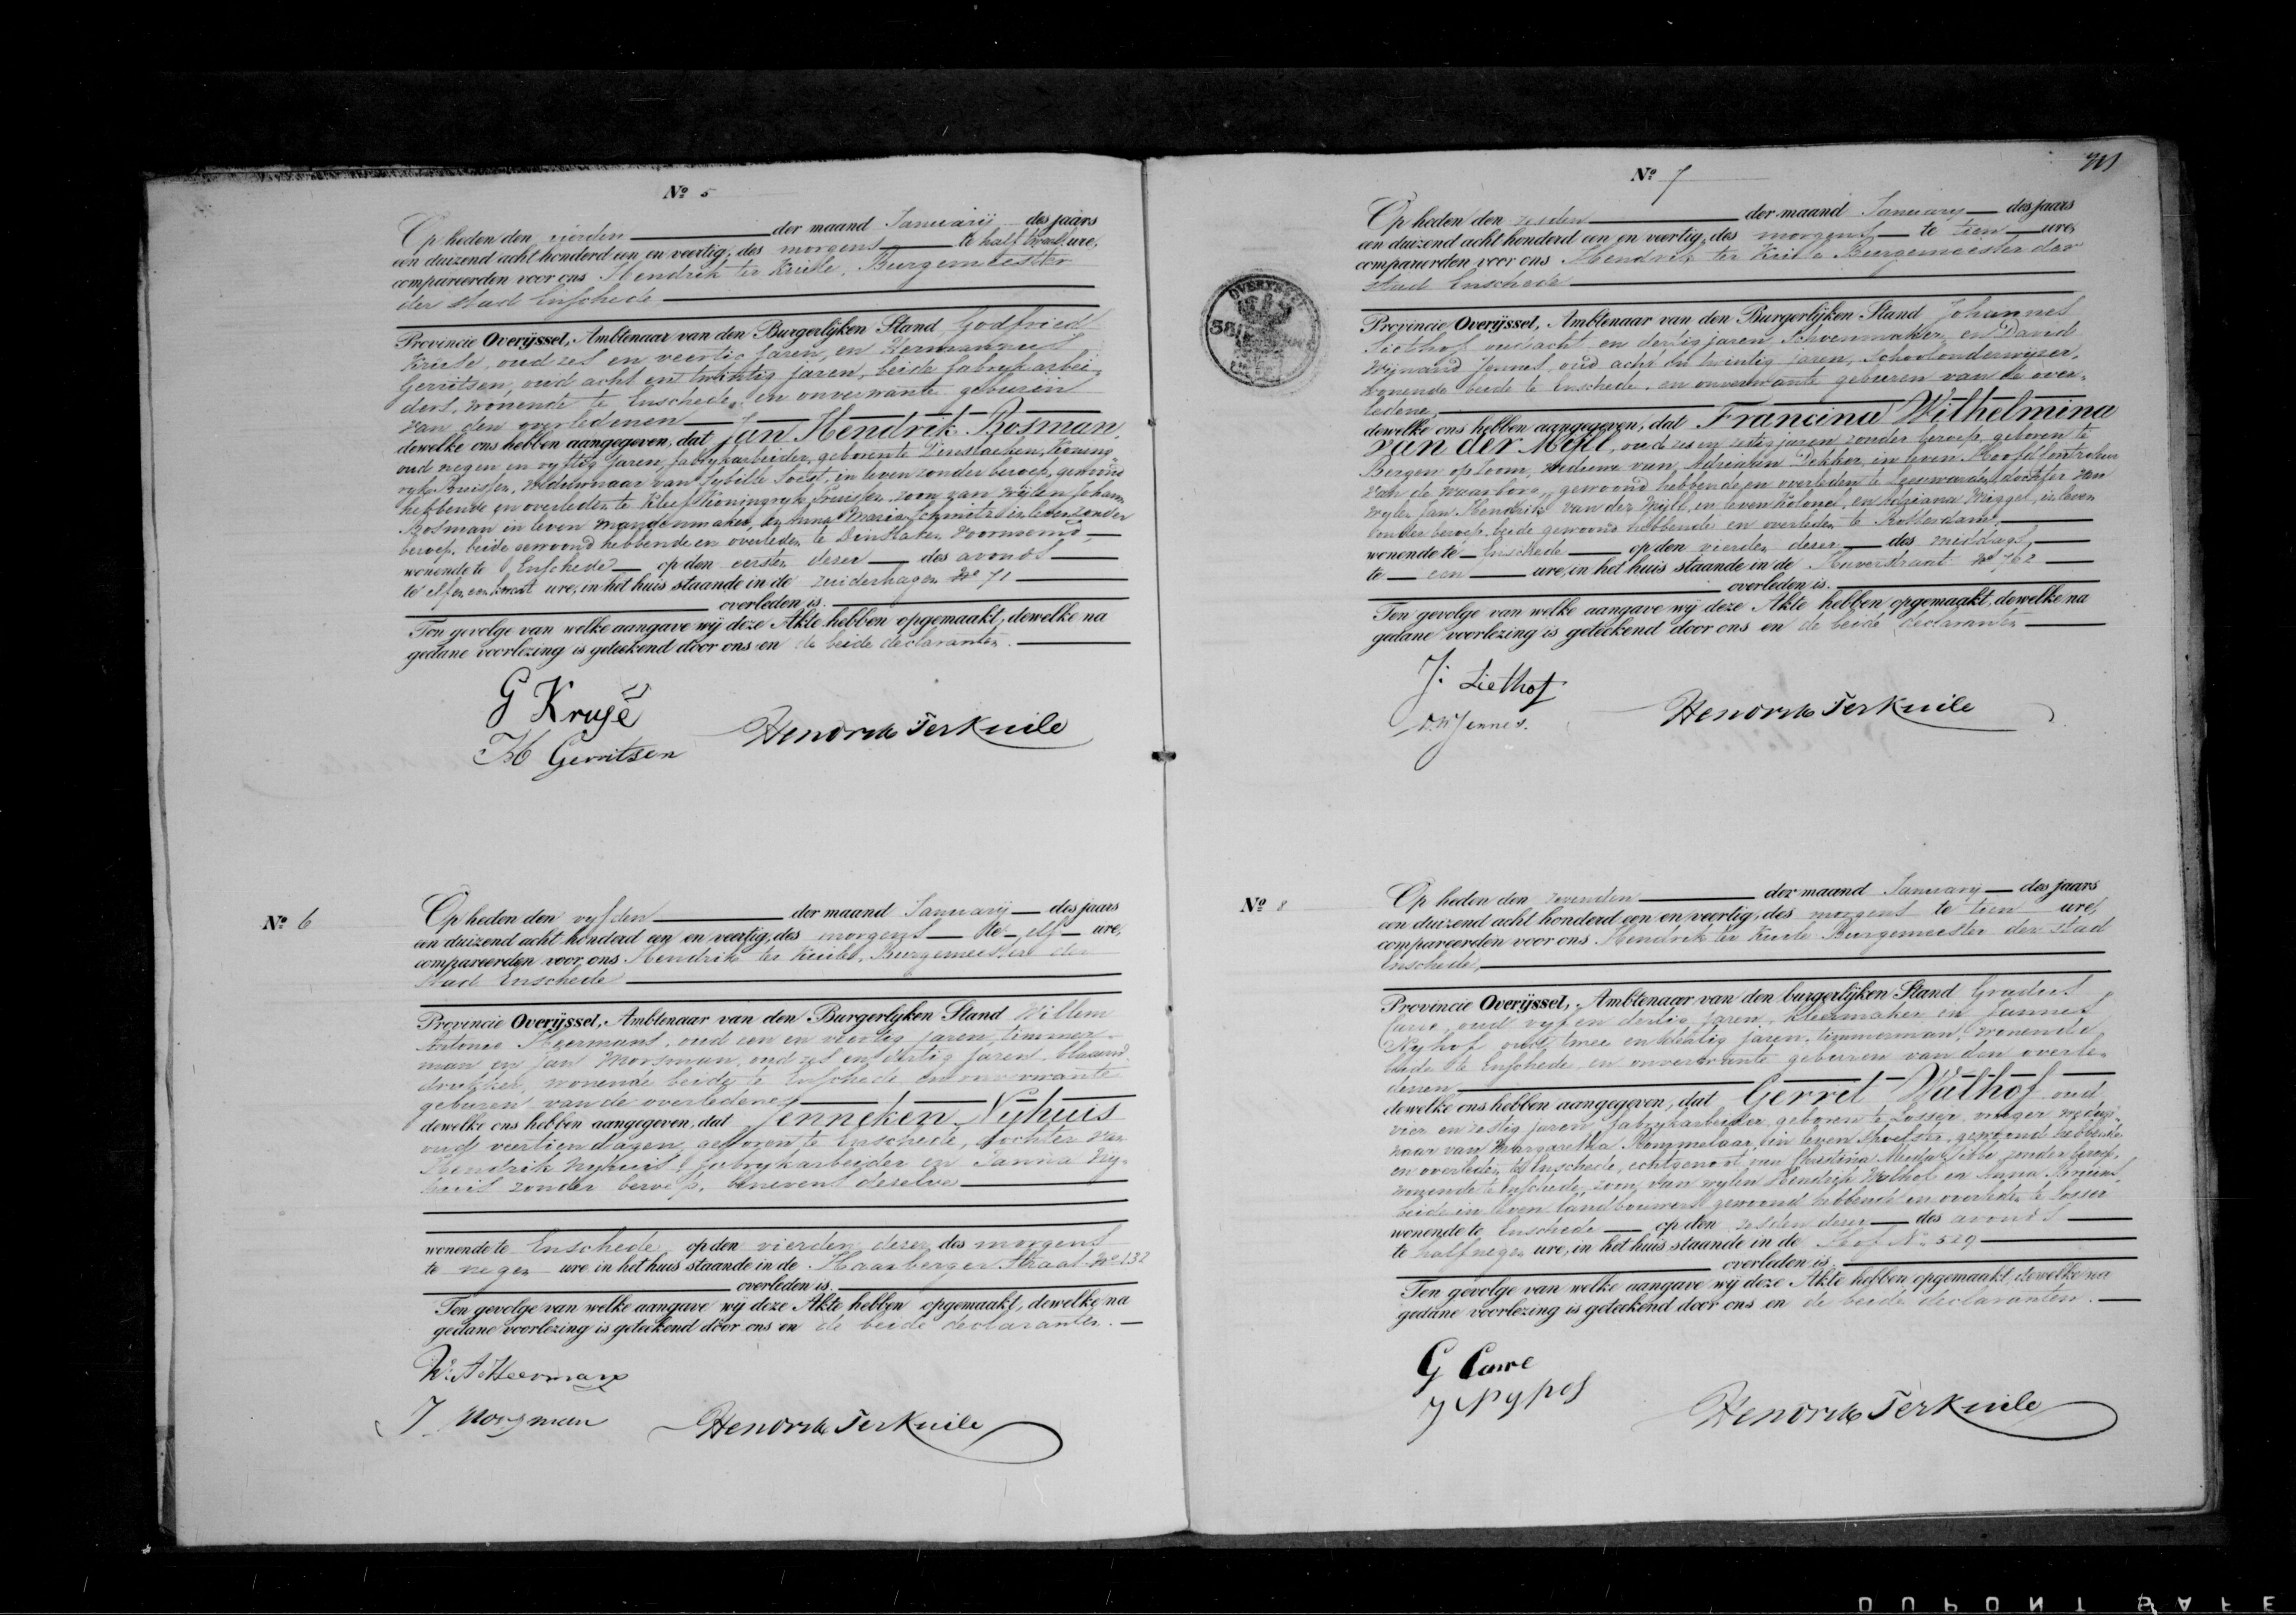 Nº 5
Op heden den vierden der maand Januarij des jaars
een duizend acht honderd een en veertig, des morgens te half twaalf ure,
compareerden voor ons Hendrik ter Kuile, Burgemeester
der stad Enschede
Provincie Overijssel, Ambtenaar van den Burgerlijken Stand Godfried
Kruse, oud zes en veertig jaren, en Hermannus
Gerritsen, oud acht en twintig jaren, beide fabrykarbei-
ders, wonende te Enschede, en onverwante geburen
van den overledenen
dewelke ons hebben aangegeven, dat Jan Hendrik Bosman,
oud negen en vyftig jaren, fabrykarbeider, geboren te Dinslacken, Koning-
ryk Pruissen, weduwnaar van Sybille Soest, in leven zonder beroep, gewoond
hebbende en overleden te Kleef Koningryk Pruissen, zoon van wylen Johan
Bosman in leven mandenmaker, en Anna Maria Schmitz in leven zonder
beroep, beide gewoond hebbende en overleden te Dinslaken voornoemd
wonende te Enschede op den eersten dezer des avonds
te elf en een kwart ure, in het huis staande in de Zuiderhagen Nº 71
overleden is.
Ten gevolge van welke aangave wij deze Akte hebben opgemaakt, dewelke na
gedane voorlezing is geteekend door ons en de beide declaranten.
G Krusé
H Gerritsen
Hendrik Ter Kuile
Nº 6
Op heden den vyfden der maand Januarij des jaars
een duizend acht honderd een en veertig, des morgens te elf ure,
compareerden voor ons Hendrik ter Kuile, Burgemeester der
stad Enschede
Provincie Overijssel, Ambtenaar van den Burgerlijken Stand Willem
Antonie Heermans, oud een en veertig jaren, timmer-
man en Jan Morsman, oud zes en dertig jaren, blaauw-
drukker, wonende beide te Enschede en onverwante
geburen van de overledene
dewelke ons hebben aangegeven, dat Jenneken Nyhuis
oud veertien dagen, geboren te Enschede, dochter van
Hendrik Nyhuis fabrykarbeider en Janna Ny-
huis zonder beroep, benevens dezelve
wonende te Enschede op den vierden dezer des morgens
te negen ure in het huis staande in de Haarberger Straat Nº 132
overleden is.
Ten gevolge van welke aangave wij deze Akte hebben opgemaakt, dewelke na
gedane voorlezing is geteekend door ons en de beide declaranten.
W. A Heermans
J. Morsman
Hendrik Ter Kuile
Nº 7
Op heden den zesden der maand January des jaars
een duizend acht honderd een en veertig, des morgens te tien ure,
compareerden voor ons Hendrik ter Kuile Burgemeester der
stad Enschede
Provincie Overijssel, Ambtenaar van den Burgerlijken Stand Johannes
Liethof oud acht en dertig jaren, Schoenmaker, en David
Wijnand Jennes, oud acht en twintig jaren, Schoolonderwijzer,
wonende beide te Enschede, en onverwante geburen van de over-
ledene,
dewelke ons hebben aangegeven, dat Francina Wilhelmina
van der Mijll, oud zes en zestig jaren zonder beroep, geboren te
Bergen op Zoom, weduwe van Adriaan Dekker, in leven Hoofdkontroleur
van de waarborg, gewoond hebbende en overleden te Leeuwarden, dochter van
wylen Jan Hendrik van der Mijll, in leven Kolonel, en Adriana Migget, in leven
zonder beroep, beide gewoond hebbende en overleden te Rotterdam,
wonende te Enschede op den vierden dezer des middags
te een ure, in het huis staande in de Haverstraat Nº 762
overleden is.
Ten gevolge van welke aangave wij deze Akte hebben opgemaakt, dewelke na
gedane voorlezing is geteekend door ons en de beide declaranten
J: Liethof
D.W Jennes.
Hendrik Ter Kuile
OVERYSSEL
Nº 8
Op heden den zevenden der maand Januarij des jaars
een duizend acht honderd een en veertig, des morgens te tien ure,
compareerden voor ons Hendrik ter Kuile Burgemeester der stad
Enschede,
Provincie Overijssel, Ambtenaar van den burgerlijken Stand Gradus
Carre, oud vyf en dertig jaren, kleermaker en Jannes
Nyhof oud twee en jaren, timmerman, wonende
beide te Enschede en onverwante geburen van den overle-
denen
dewelke ons hebben aangegeven, dat Gerret Walhof oud
vier en zestig jaren, fabrykarbeider, geboren te Losser, vroeger weduw-
naar van Margaretha Rommelaar, in leven gewoond hebbende
en overleden te Enschede, echtgenoot van Christina zonder beroep,
wonende te Enschede, zoon van wylen Hendrik Walhof en Anna
beide in leven landbouwers gewoond hebbende en overleden te Losser
wonende te Enschede op den zesden dezer des avonds
te half negen ure, in het huis staande in de Hof Nº 529
overleden is.
Ten gevolge van welke aangave wij deze Akte hebben opgemaakt, dewelke na
gedane voorlezing is geteekend door ons en de beide declaranten.
G Carre
J Nyhof
Hendrik Ter Kuile